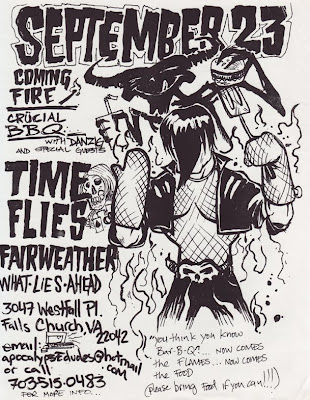 SEPTEMBER 23
COMING
FIRE
CRÜCIAL
BBQ
WITH DANZIG
AND SPECIAL GUESTS
TIME
FLIES
FAIRWEATHER
WHAT·LIES·AHEAD
3047 Westfall Pl.
Falls Church, VA
22042
email:
apocalypsedudes@hotmail
.com
or call
703·515·0483
FOR MORE INFO...
"you think you know
Bar-B-Q?... NOW COMES
the FLAMES... NOW COMES
the FOOD
(Please bring Food if you can!!!)